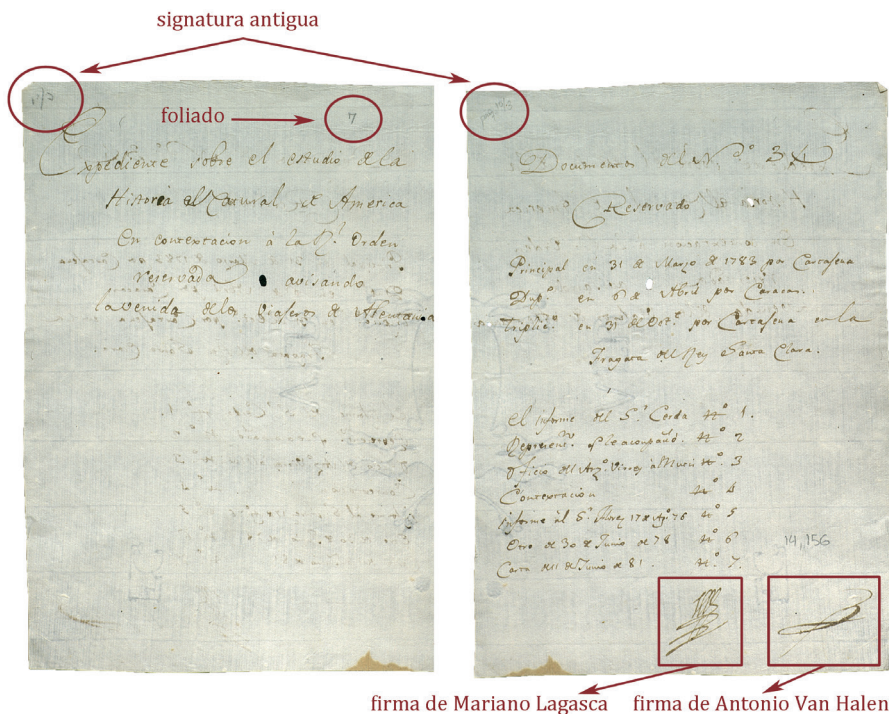 signatura antigua
foliado
7
Expediente sobre el estudio de la
Historia Natural de America
En contextacion à la Rl. Orden
reservada avisando
la venida de los Viajeros de
Documentos de la N.º 3
Reservado
Principal en 31 de Marzo de 1783 por Cartagena
Dupº. en 6 de Abril por Caracas.
Triplicº. en 31 de Octe. por Cartagena en la
Fragata del Rey Santa Clara.
el informe del Sr. Cerda Nº 1.
qe. le acompañó. Nº 2
Oficio del Arzº. Virrey à Mutis Nº. 3
Contextacion Nº 4
informe àl Sr. Florez 17 de 76 Nº 5
Otro de 30 de Junio de 78 Nº 6
Carta del 1 de Junio de 81. Nº. 7.
14,156
firma de Mariano Lagasca
firma de Antonio Van Halen